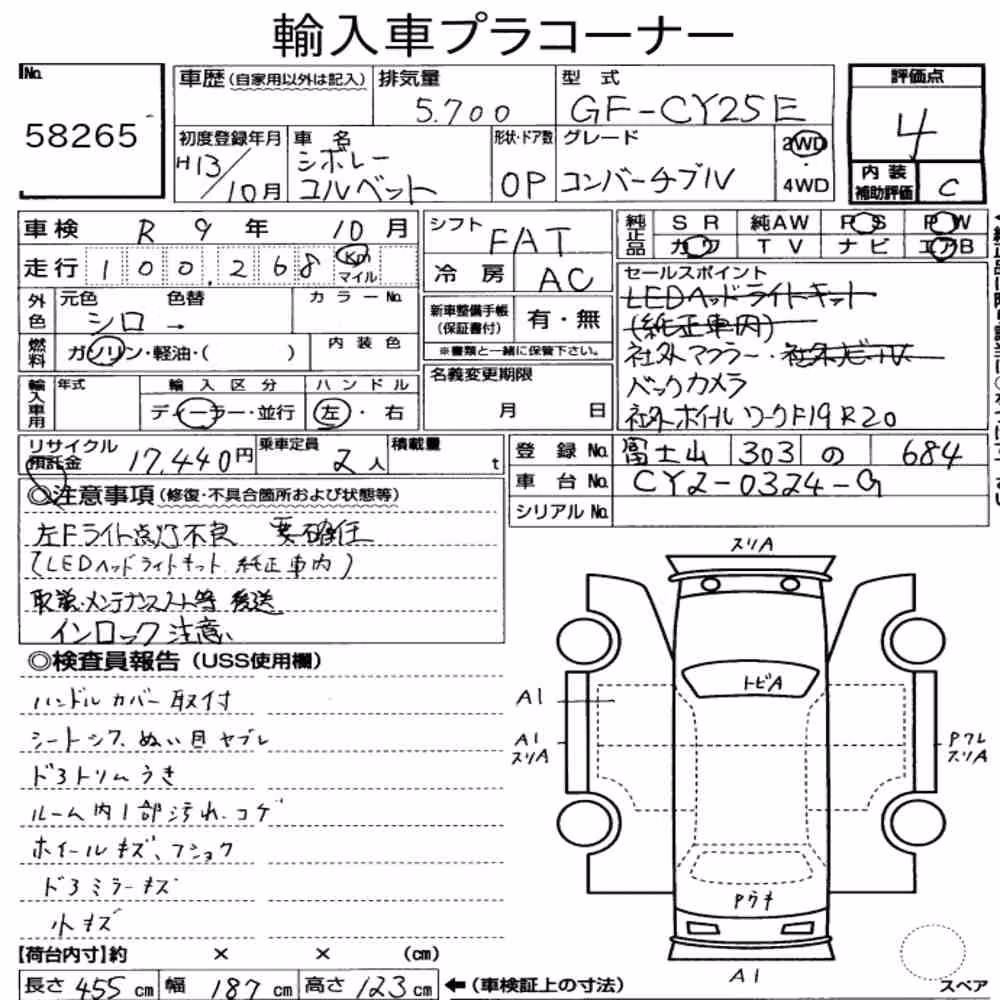 輸入車プラコーナー
No.
58265
車歴(自家用以外は記入)
排気量
5.700
型式
GF-CY25E
評価点
4
初度登録年月
H13/10月
車名
シボレー
コルベット
形状・ドア数
OP
グレード
コンバーチブル
2WD
・
4WD
内装
補助評価
C
車検 R 9年 10月
シフト
FAT
純正品
SR 純AW PS PW
カワ TV ナビ エアB
走行 100,268 Km
マイル
冷房 AC
セールスポイント
LEDヘッドライトキット
(純正車内)
社外マフラー・社外ビール
バックカメラ
社外ホイール ワークF19 R20
外色
元色 色替
シロ →
カラーNo.
新車整備手帳
(保証書付)
有・無
※書類と一緒に保管下さい。
燃料
ガソリン・軽油・( )
内装色
輸入車用
年式
輸入区分
ディーラー・並行
ハンドル
左・右
名義変更期限
月 日
リサイクル
預託金
17,440円
乗車定員
2人
積載量
t
登録No. 富士山 303 の 684
車台No. CY2-0324-G
シリアルNo.
◎注意事項(修復・不具合箇所および状態等)
左Fライト点灯不良 要確任
(LEDヘッドライトキット 純正車内)
取説・メンテナンスノート等 後送
インロック注意
◎検査員報告(USS使用欄)
ハンドルカバー取付
シートシワ、ぬい目ヤブレ
ド3トリムうき
ルーム内1部汚れ、コゲ
ホイールキズ、フショク
ド3ミラーキズ
小キズ
スリA
トビA
A1
A1
スリA
Pワレ
スリA
Pウキ
A1
スペア
【荷台内寸】約 × × (cm)
長さ 455cm 幅 187cm 高さ 123cm ←(車検証上の寸法)